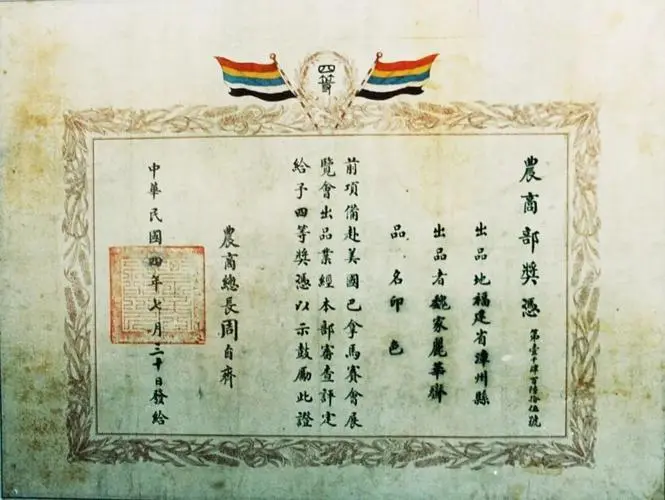 四等
農商部獎憑 第壹千肆百陸拾伍號
出品地福建省漳州縣
出品者魏家麗華齋
品名印色
前項備赴美國巴拿馬賽會展
覽會出品業經本部審查評定
給予四等獎憑以示鼓勵此證
農商總長周自齊
中華民國四年七月三十日發給